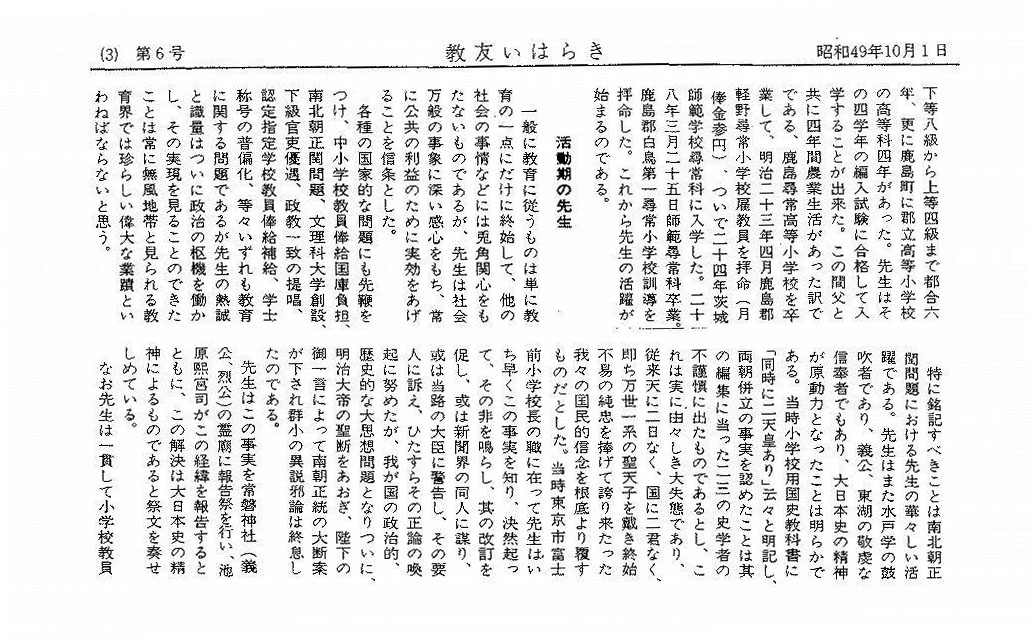 (3) 第6号
教友いはらき
昭和49年10月1日
下等八級から上等四級まで都合六
年、更に鹿島町に郡立高等小学校
の高等科四年があった。先生はそ
の四学年の編入試験に合格して入
学することが出来た。この間父と
共に四年間農業生活があった訳で
である、鹿島尋常高等小学校を卒
業して、明治二十三年四月鹿島郡
軽野尋常小学校雇教員を拝命（月
俸金参円）、ついで二十四年茨城
師範学校尋常科に入学した。二十
八年三月二十五日師範尋常科卒業。
鹿島郡白鳥第一尋常小学校訓導を
拝命した。これから先生の活躍が
始まるのである。
活動期の先生
一般に教育に従うものは単に教
育の一点にだけに終始して、他の
社会の事情などには兎角関心をも
たないものであるが、先生は社会
万般の事象に深い感心をもち、常
に公共の利益のために実効をあげ
ることを信条とした。
各種の国家的な問題にも先鞭を
つけ、中小学校教員俸給国庫負担、
南北朝正閏問題、文理科大学創設、
下級官吏優遇、政教一致の提唱、
認定指定学校教員俸給補給、学士
称号の普偏化、等々いずれも教育
に関する問題であるが先生の熱誠
と識量はついに政治の枢機を働か
し、その実現を見ることのできた
ことは常に無風地帯と見られる教
育界では珍らしい偉大な業蹟とい
わねばならないと思う。
特に銘記すべきことは南北朝正
閏問題における先生の華々しい活
躍である。先生はまた水戸学の鼓
吹者であり、義公、東湖の敬虔な
信奉者でもあり、大日本史の精神
が原動力となったことは明らかで
ある。当時小学校用国史教科書に
「同時に二天皇あり」云々と明記し、
両朝併立の事実を認めたことは其
の編集に当った二三の史学者の
不謹慎に出たものであるとし、こ
れは実に由々しき大失態であり、
従来天に二日なく、国に二君なく、
即ち万世一系の聖天子を戴き終始
不易の純忠を捧げて誇り来たった
我々の国民的信念を根底より覆す
ものだ」とした。当時東京市富士
前小学校長の職に在って先生はい
ち早くこの事実を知り、決然起っ
て、その非を鳴らし、其の改訂を
促し、或は新聞界の同人に謀り、
或は当路の大臣に警告し、その要
人に訴え、ひたすらその正論の喚
起に努めたが、我が国の政治的、
歴史的な大思想問題となりついに、
明治大帝の聖断をあおぎ、陛下の
御一言によって南朝正統の大断案
が下され群小の異説邪論は終息し
たのである。
先生はこの事実を常磐神社（義
公、烈公）の霊廟に報告祭を行い、池
原熙宮司がこの経緯を報告すると
ともに、この解決は大日本史の精
神によるものであると祭文を奏せ
しめている。
なお先生は一貫して小学校教員